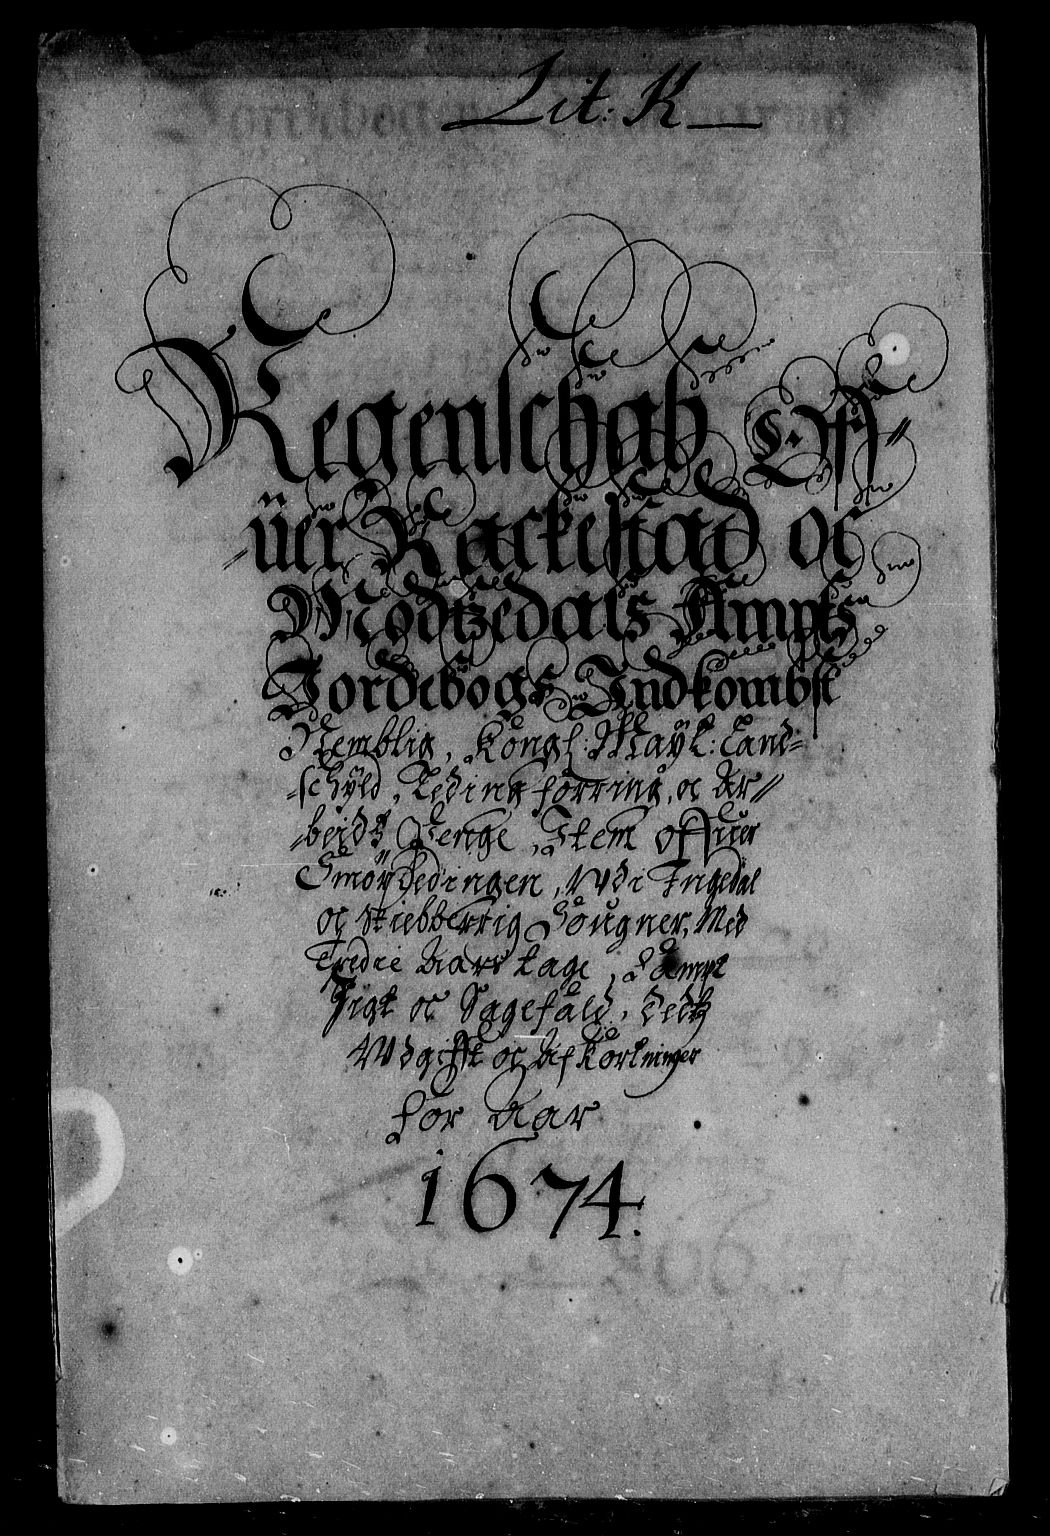 Lit: K
Regenschab Off=
üer Rackestad oc
Modtzedals Ampts
Jordebogs Indkombst
Nemblig, Kongl: Mayt: Land=
=schyld, Leding, forring, oc Ar=
=beids Penge, Item offuer
Smör Ledingen, Vdi Ingedal
oc Skiebberrig Sougner, Med
Tredie Aars tage, Sampt
Sigt oc Sagefald, Dedtz
Vdgifft oc Afkortninger
for Aar
1674.